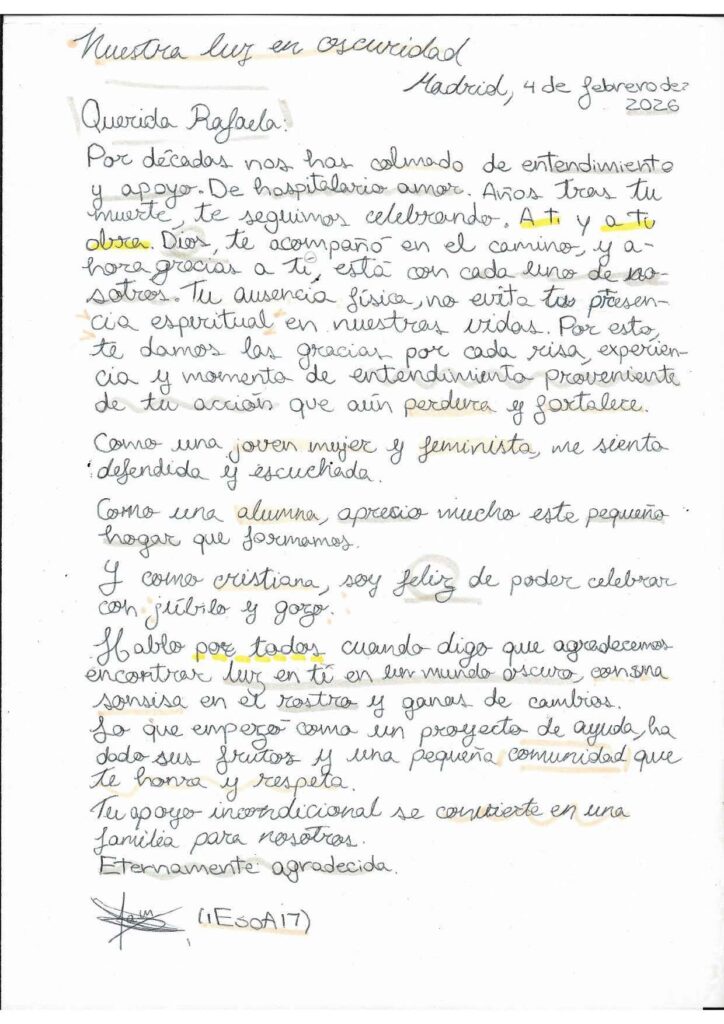 Nuestra luz en oscuridad
Madrid, 4 de febrero de
2026
Querida Rafaela:
Por décadas nos has colmado de entendimiento
y apoyo. De hospitalario amor. Años tras tu
muerte, te seguimos celebrando. A ti y a tu
obra. Dios, te acompañó en el camino, y a-
hora gracias a ti, está con cada uno de no-
sotros. Tu ausencia física, no evita tu presen-
cia espiritual en nuestras vidas. Por esto,
te damos las gracias por cada risa, experien-
cia y momento de entendimiento proveniente
de tu acción que aún perdura y fortalece.
Como una joven mujer y feminista, me siento
defendida y escuchada.
Como una alumna, apresio mucho este pequeño
hogar que formamos.
Y como cristiana, soy feliz de poder celebrar
con júbilo y gozo.
Hablo por todos cuando digo que agradecemos
encontrar luz en tí en un mundo oscuro, con una
sonsisa en el rostro y ganas de cambios.
Lo que empezó como un proyecto de ayuda, ha
dado sus frutos y una pequeña comunidad que
te honra y respeta.
Tu apoyo incondicional se convierte en una
familia para nosotros.
Eternamente agradecida.
(1ESOA17)